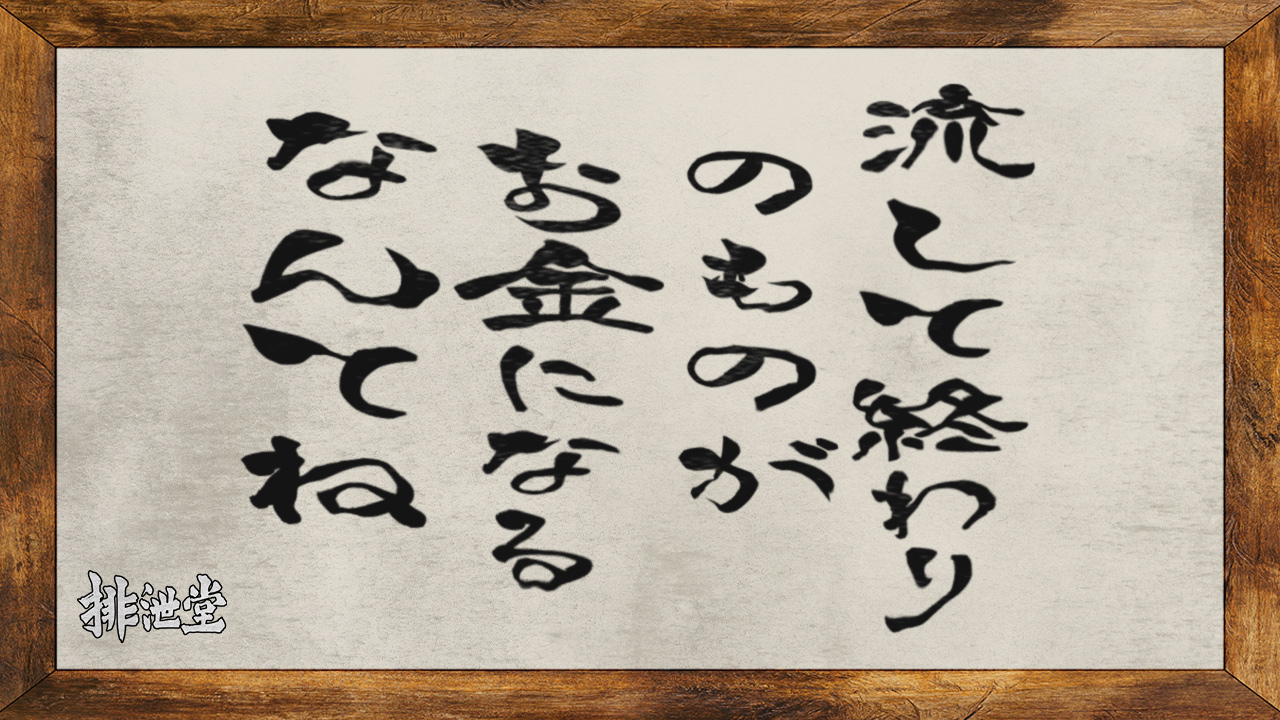 流して終わり
のものが
お金になる
なんてね
排泄堂